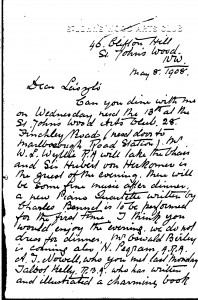 ST JOHNS WOOD ARTS CLUB
46, Clifton Hill
St John's Wood.
N.W.
May 8. 1908.
Dear László
Can you dine with me
on Wednesday next the 13th at the
St John's Wood Arts Club, 28.
Finchley Road, (next door to
Marlborough Road Station). Mr
W. L. Wyllie R.A will take the Chair
and Sir Hubert von Herkomer is
the guest of the evening. There will
be some fine music after dinner,
a new Piano Quartette written by
Charles Bennet is to be performed
for the first time. I think you
would enjoy the evening. We do not
dress for dinner. Mr Oswald Birley
is coming also H. Pegram, A.R.A,
A. T. Nowell, who you met last Monday
Talbot Kelly, R.B.A. who has written
and illustrated a charming book